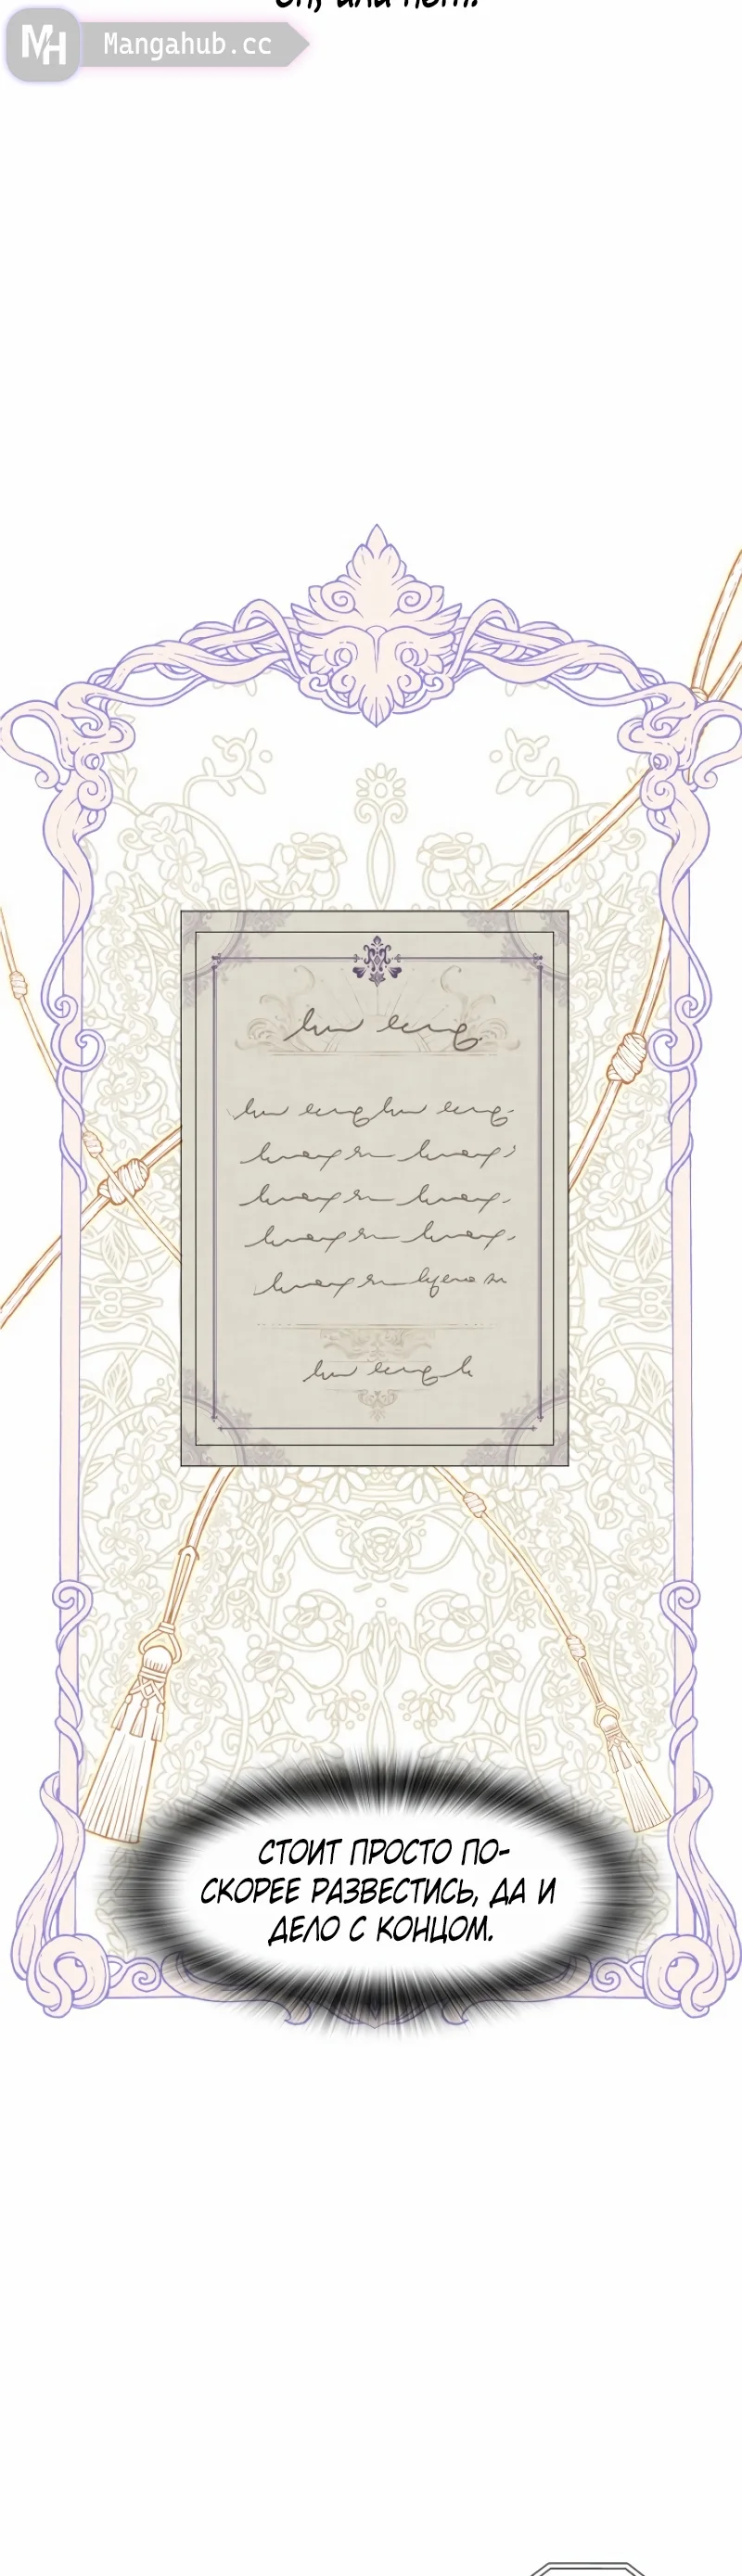 он, или нет.
MH Mangahub.cc
СТОИТ ПРОСТО ПО-
СКОРЕЕ РАЗВЕСТИСЬ, ДА И
ДЕЛО С КОНЦОМ.